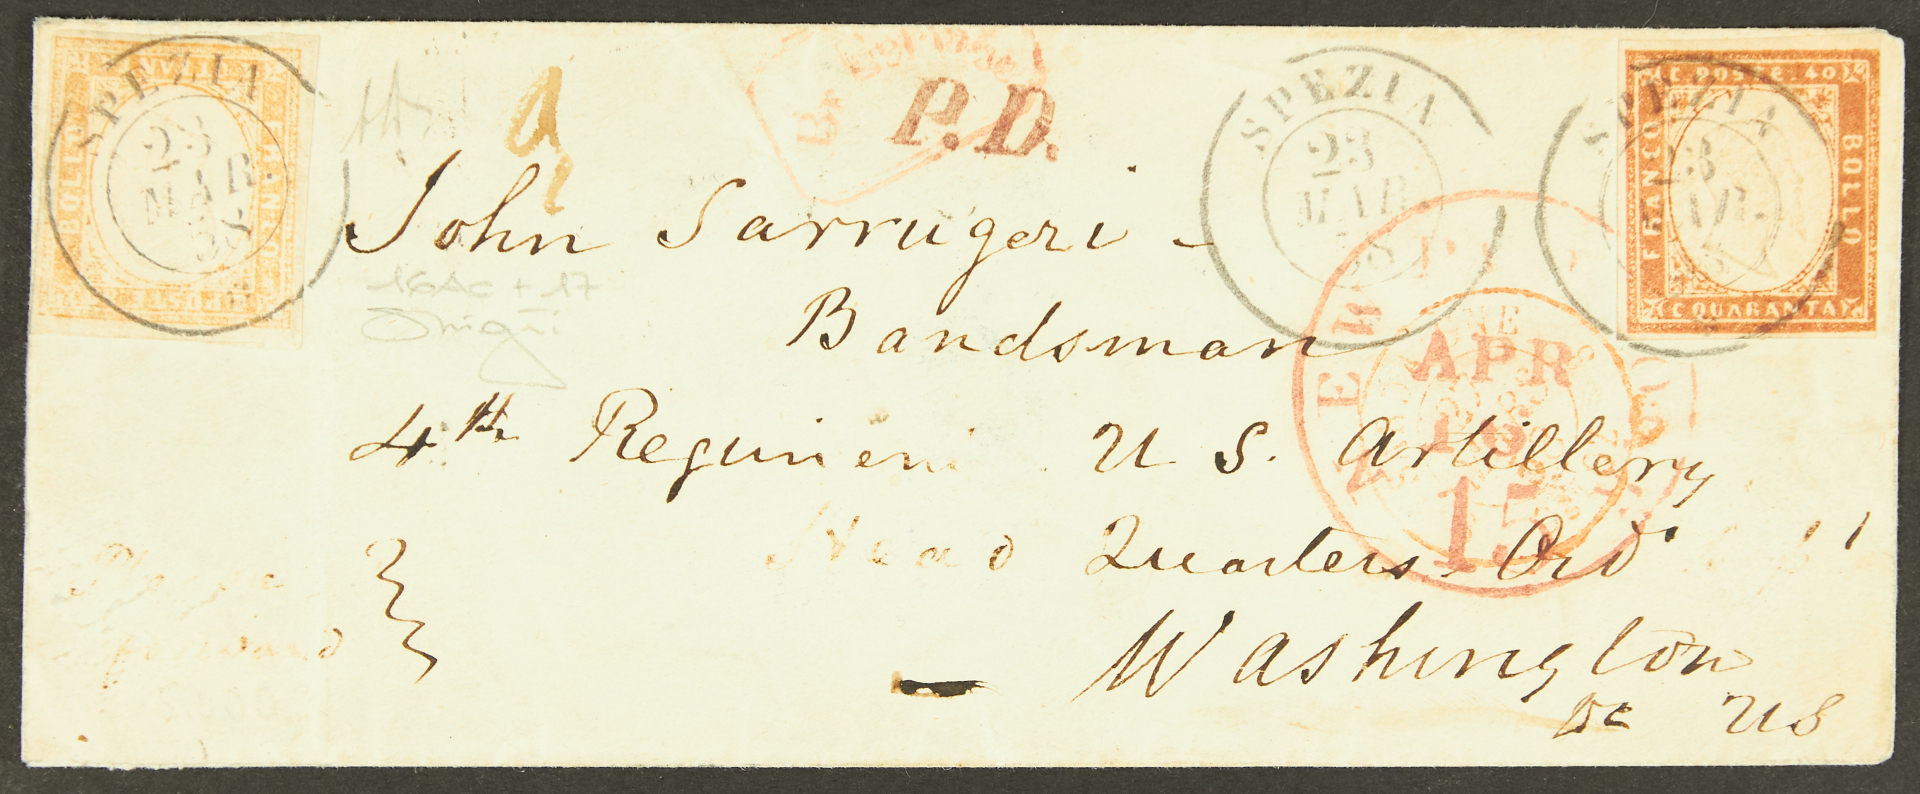 SPEZIA
23
MAR
58
BOLLO
FRANCO
P.D.
SPEZIA
23
MAR
58
SPEZIA
23
C. POSTE. 40
FRANCO
BOLLO
C QUARANTA
John Sarrugeri -
Bandsman
4th Regiment U S. Artillery
Head Quarters Ord
Washington
DC US
Please
forward
16Ac + 17
APR
15